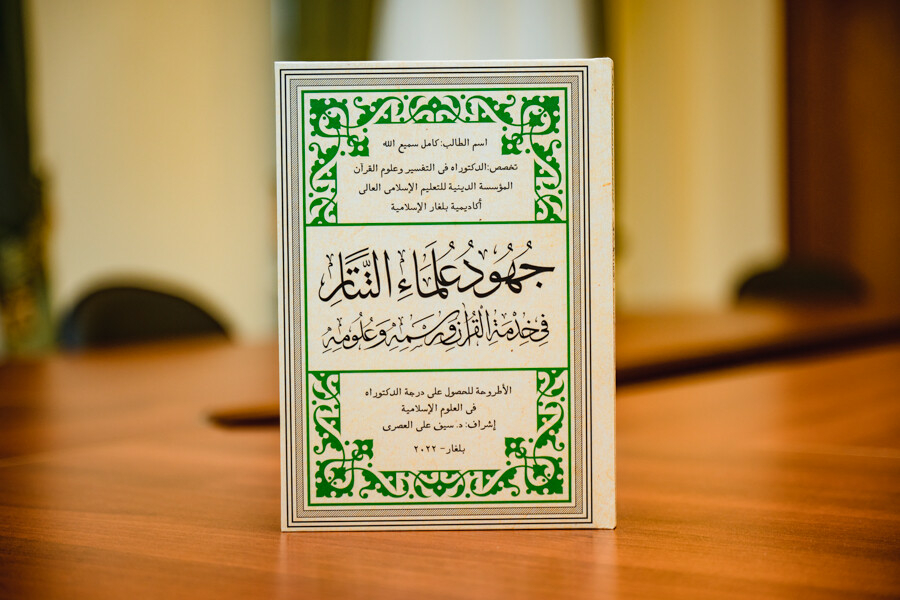 اسم الطالب: كامل سميع الله
تخصص: الدكتوراه فى التفسير وعلوم القرآن
المؤسسة الدينية للتعليم الإسلامى العالى
أكاديمية بلغار الإسلامية
جُهُودُ عُلَمَاءِ التَّتَارِ
فِي خِدْمَةِ الْقُرْآنِ وَرَسْمِهِ وَعُلُومِهِ
الأطروحة للحصول على درجة الدكتوراه
فى العلوم الإسلامية
إشراف: د. سيف على العصرى
بلغار - ٢٠٢٢